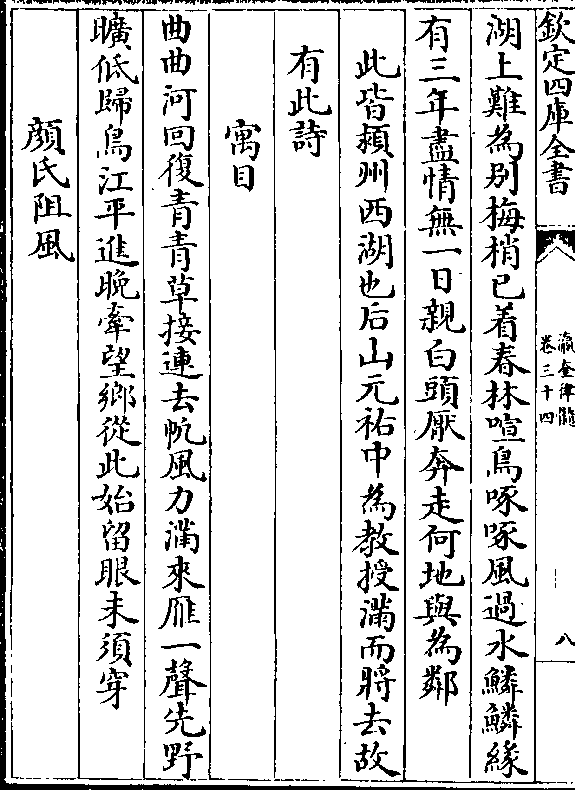 欽定四庫全書
瀛奎律髓
卷三十四
八
湖上難為别梅梢已着春林喧鳥啄啄風過水鱗鱗緣
有三年盡情無一日親白頭厭奔走何地與為鄰
此皆潁州西湖也后山元祐中為教授滿而將去故
有此詩
寓目
曲曲河回復青青草接連去帆風力滿來雁一聲先野
曠低歸鳥江平進晚牽望鄉從此始留眼未須穿
顔氏阻風